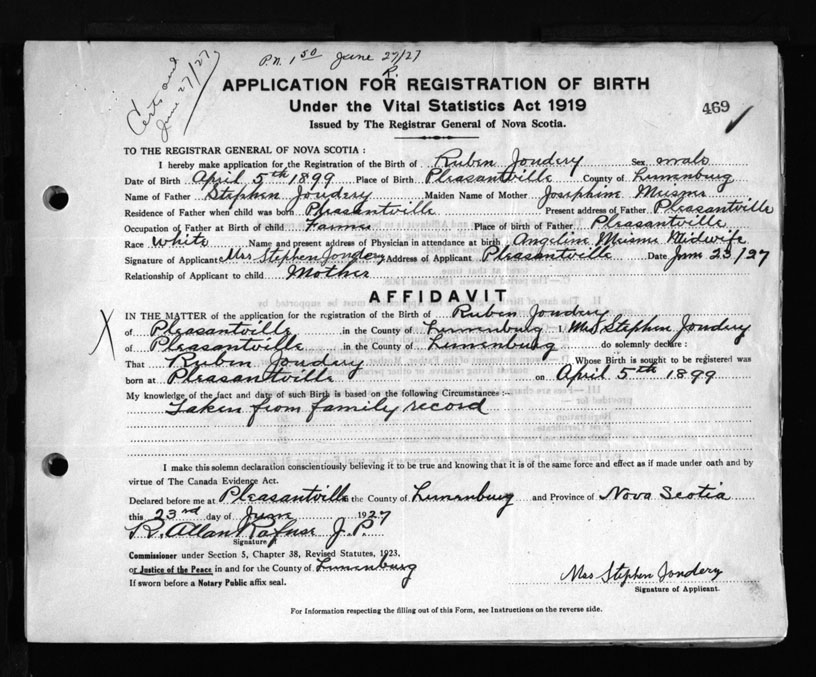 P.N. 1 50 June 27/27
Certs and
June 27/27
R.
APPLICATION FOR REGISTRATION OF BIRTH
Under the Vital Statistics Act 1919
469
Issued by The Registrar General of Nova Scotia.
TO THE REGISTRAR GENERAL OF NOVA SCOTIA:
I hereby make application for the Registration of the Birth of Ruben Joudery Sex male
Date of Birth April 5th 1899 Place of Birth Pleasantville County of Lunenburg
Name of Father Stephen Joudery Maiden Name of Mother Josephine
Residence of Father when child was born Pleasantville Present address of Father Pleasantville
Occupation of Father at Birth of child Farmer Place of birth of Father Pleasantville
Race White Name and present address of Physician in attendance at birth Angeline Midwife
Signature of Applicant Mrs Stephen Joudery Address of Applicant Pleasantville Date June 23/27
Relationship of Applicant to child Mother
AFFIDAVIT
IN THE MATTER of the application for the registration of the Birth of Ruben Joudery
X of Pleasantville in the County of Lunenburg I Mrs Stephen Joudery
of Pleasantville in the County of Lunenburg do solemnly declare:
That Ruben Joudery Whose Birth is sought to be registered was
born at Pleasantville on April 5th 1899
My knowledge of the fact and date of such Birth is based on the following Circumstances:-
Taken from family record
I make this solemn declaration conscientiously believing it to be true and knowing that it is of the same force and effect as if made under oath and by
virtue of The Canada Evidence Act.
Declared before me at Pleasantville the County of Lunenburg and Province of Nova Scotia
this 23rd day of June 1927
R. Allan J. P.
Signature of
Commissioner under Section 5, Chapter 38, Revised Statutes, 1923.
or Justice of the Peace in and for the County of Lunenburg
If sworn before a Notary Public affix seal.
Mrs Stephen Joudery
Signature of Applicant.
For Information respecting the filling out of this Form, see Instructions on the reverse side.